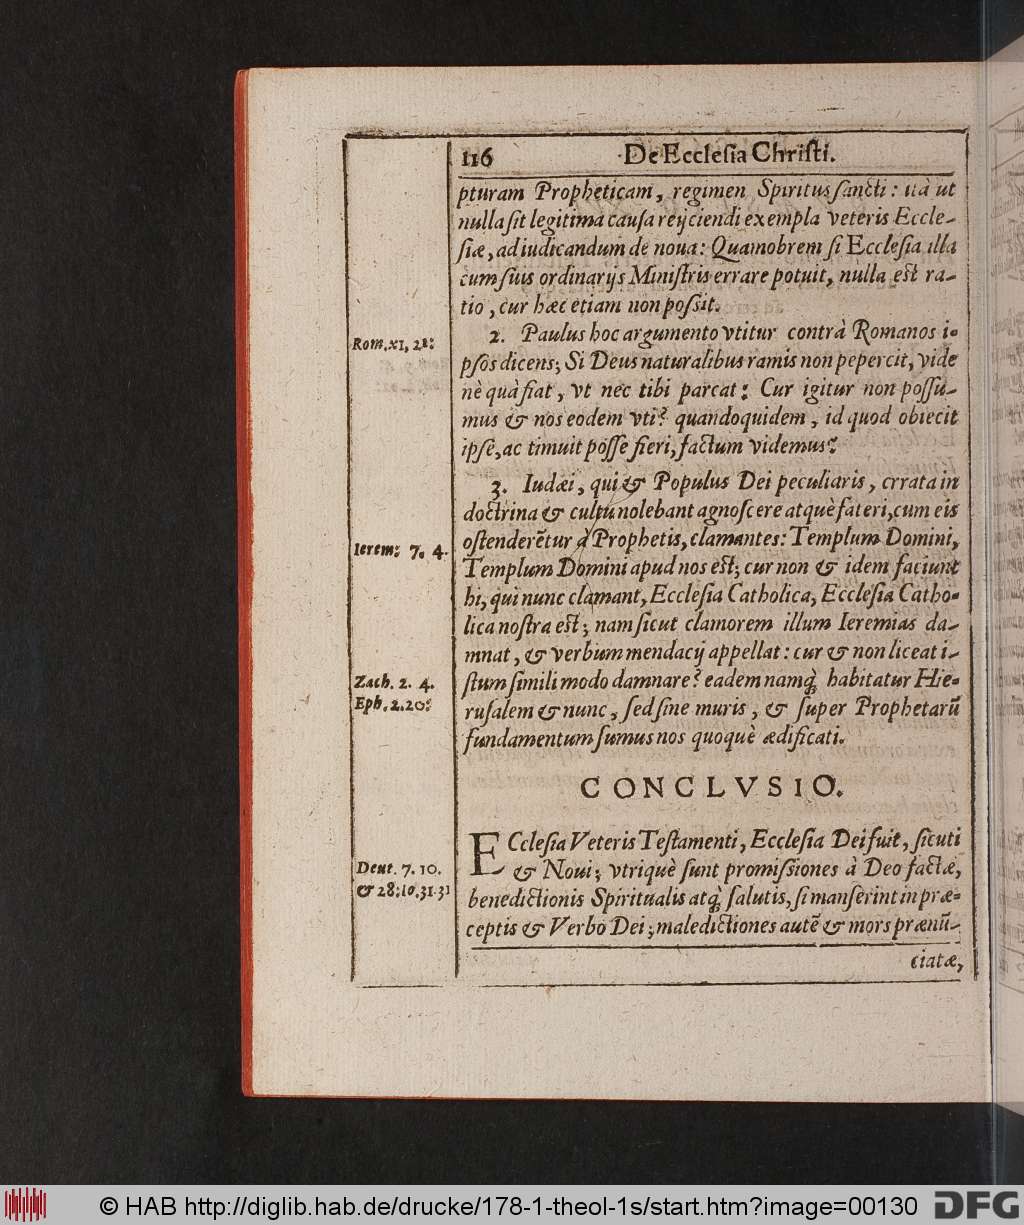 116 De Ecclesia Christi.
pturam Propheticam, regimen Spiritus sancti: ità ut
nulla sit legitima causa reijciendi exempla veteris Eccle-
siæ, ad iudicandum de noua: Quamobrem si Ecclesia illa
cum suis ordinarijs Ministris errare potuit, nulla est ra-
tio, cur hæc etiam non possit.
Rom. XI, 21:
2. Paulus hoc argumento vtitur contrà Romanos i-
psos dicens; Si Deus naturalibus ramis non pepercit, vide
nè quà fiat, vt nec tibi parcat: Cur igitur non possu-
mus & nos eodem vti? quandoquidem, id quod obiecit
ipse, ac timuit posse fieri, factum videmus?
3. Iudæi, qui & Populus Dei peculiaris, errata in
doctrina & cultu nolebant agnoscere atquè fateri, cum eis
Ierem: 7. 4.
ostenderẽtur à Prophetis, clamantes: Templum Domini,
Templum Domini apud nos est; cur non & idem faciunt
hi, qui nunc clamant, Ecclesia Catholica, Ecclesia Catho-
lica nostra est; nam sicut clamorem illum Ieremias da-
mnat, & verbum mendacij appellat: cur & non liceat i-
Zach. 2. 4.
stum simili modo damnare? eadem namq́; habitatur Hie-
Eph. 2. 20:
rusalem & nunc, sed sine muris, & super Prophetarũ
fundamentum sumus nos quoquè ædificati.
CONCLVSIO.
ECclesia Veteris Testamenti, Ecclesia Dei fuit, sicuti
Deut. 7. 10.
& Noui; vtriquè sunt promissiones à Deo factæ,
& 28; 10. 31. 31
benedictionis Spiritualis atq́; salutis, si manserint in præ-
ceptis & Verbo Dei; maledictiones autẽ & mors prænũ-
ciatæ,
© HAB http://diglib.hab.de/drucke/178-1-theol-1s/start.htm?image=00130 DFG